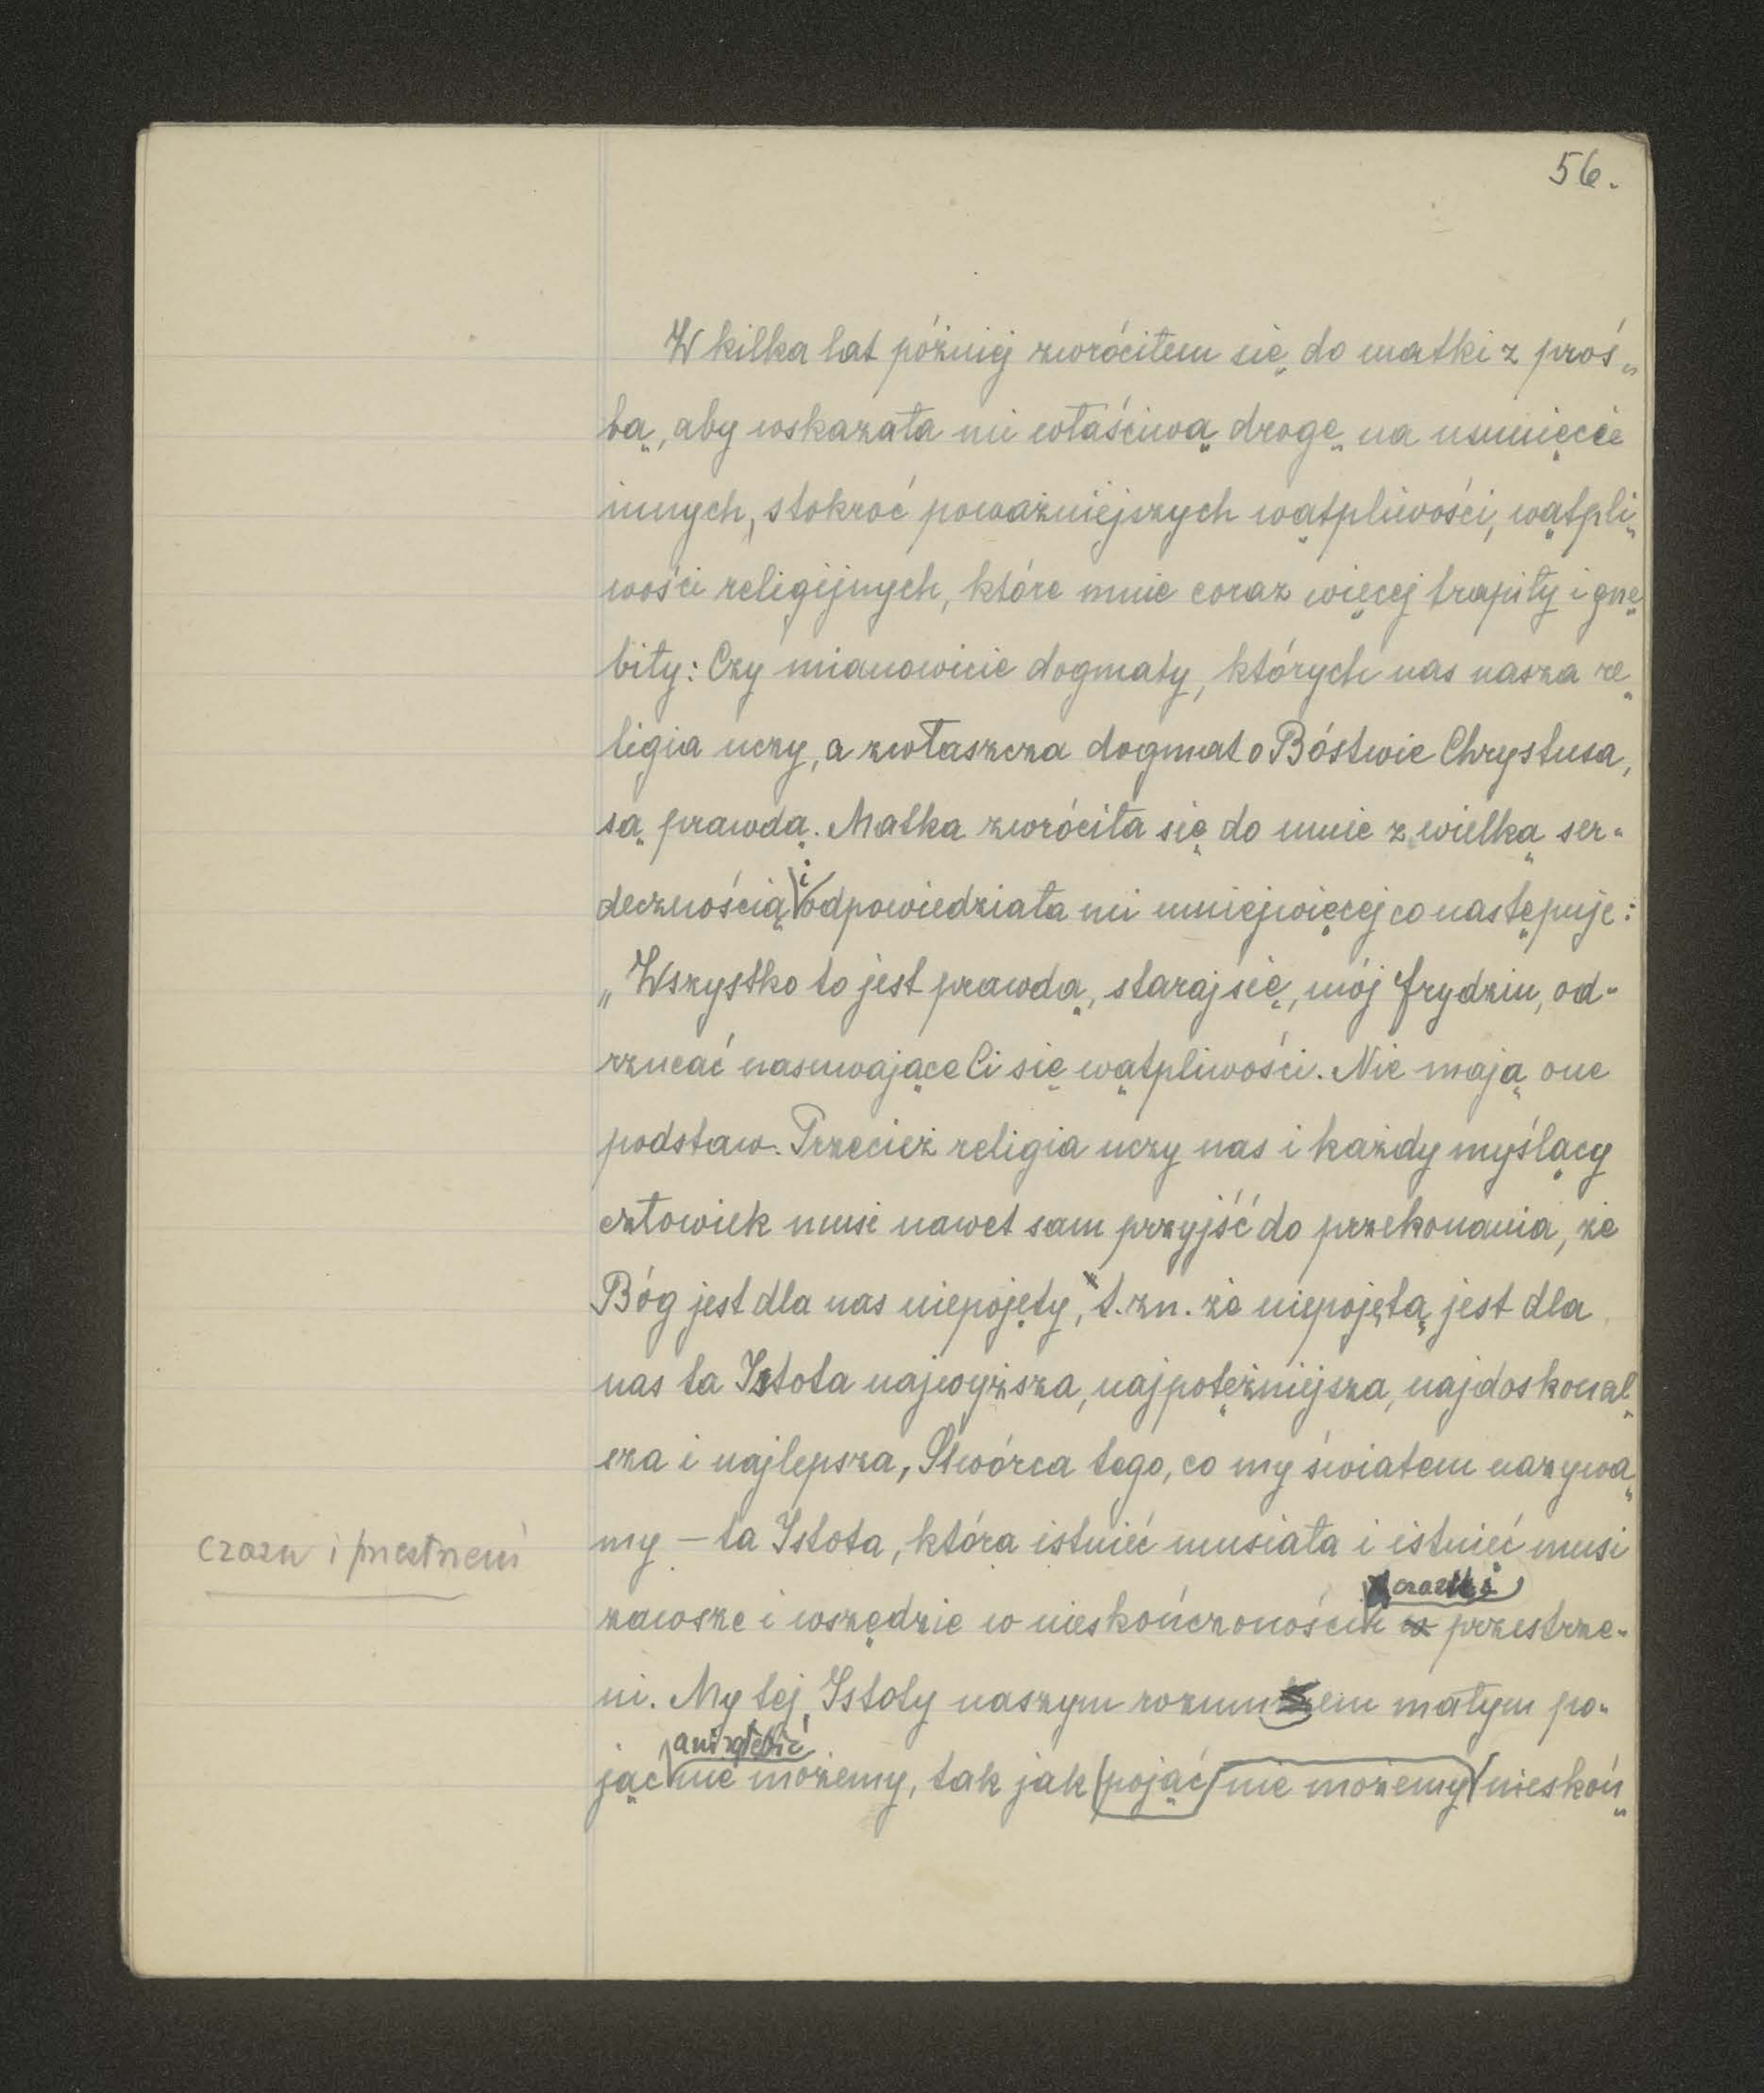 56.
W kilka lat później zwróciłem się do matki z proś„
bą, aby wskazała mi właściwą drogę na usunięcie
innych, stokroć poważniejszych wątpliwości, wątpli„
wości religijnych, które mnie coraz więcej trapiły i gnę„
biły: Czy mianowicie dogmaty, których nas nasza re„
ligia uczy, a zwłaszcza dogmat o Bóstwie Chrystusa,
są prawdą. Matka zwróciła się do mnie z wielką ser„
decznością i odpowiedziała mi mniejwięcej co następuje:
„Wszystko to jest prawdą, staraj się, mój Frydziu, od„
rzucać nasuwające Ci się wątpliwości. Nie mają one
podstaw. Przecież religia uczy nas i każdy myślący
człowiek musi nawet sam przyjść do przekonania, że
Bóg jest dla nas niepojęty, t.zn. że niepojętą jest dla
nas ta Istota najwyższa, najpotężniejsza, najdoskonal„
sza i najlepsza, Stwórca tego, co my światem nazywa„
my – ta Istota, która istnieć musiała i istnieć musi
czasu i przestrzeni
czasu i
zawsze i wszędzie w nieskończoności w przestrze„
ni. My tej Istoty naszym rozumem małym po„
ani zgłębić
jąc nie możemy, tak jak pojąć nie możemy nieskoń„